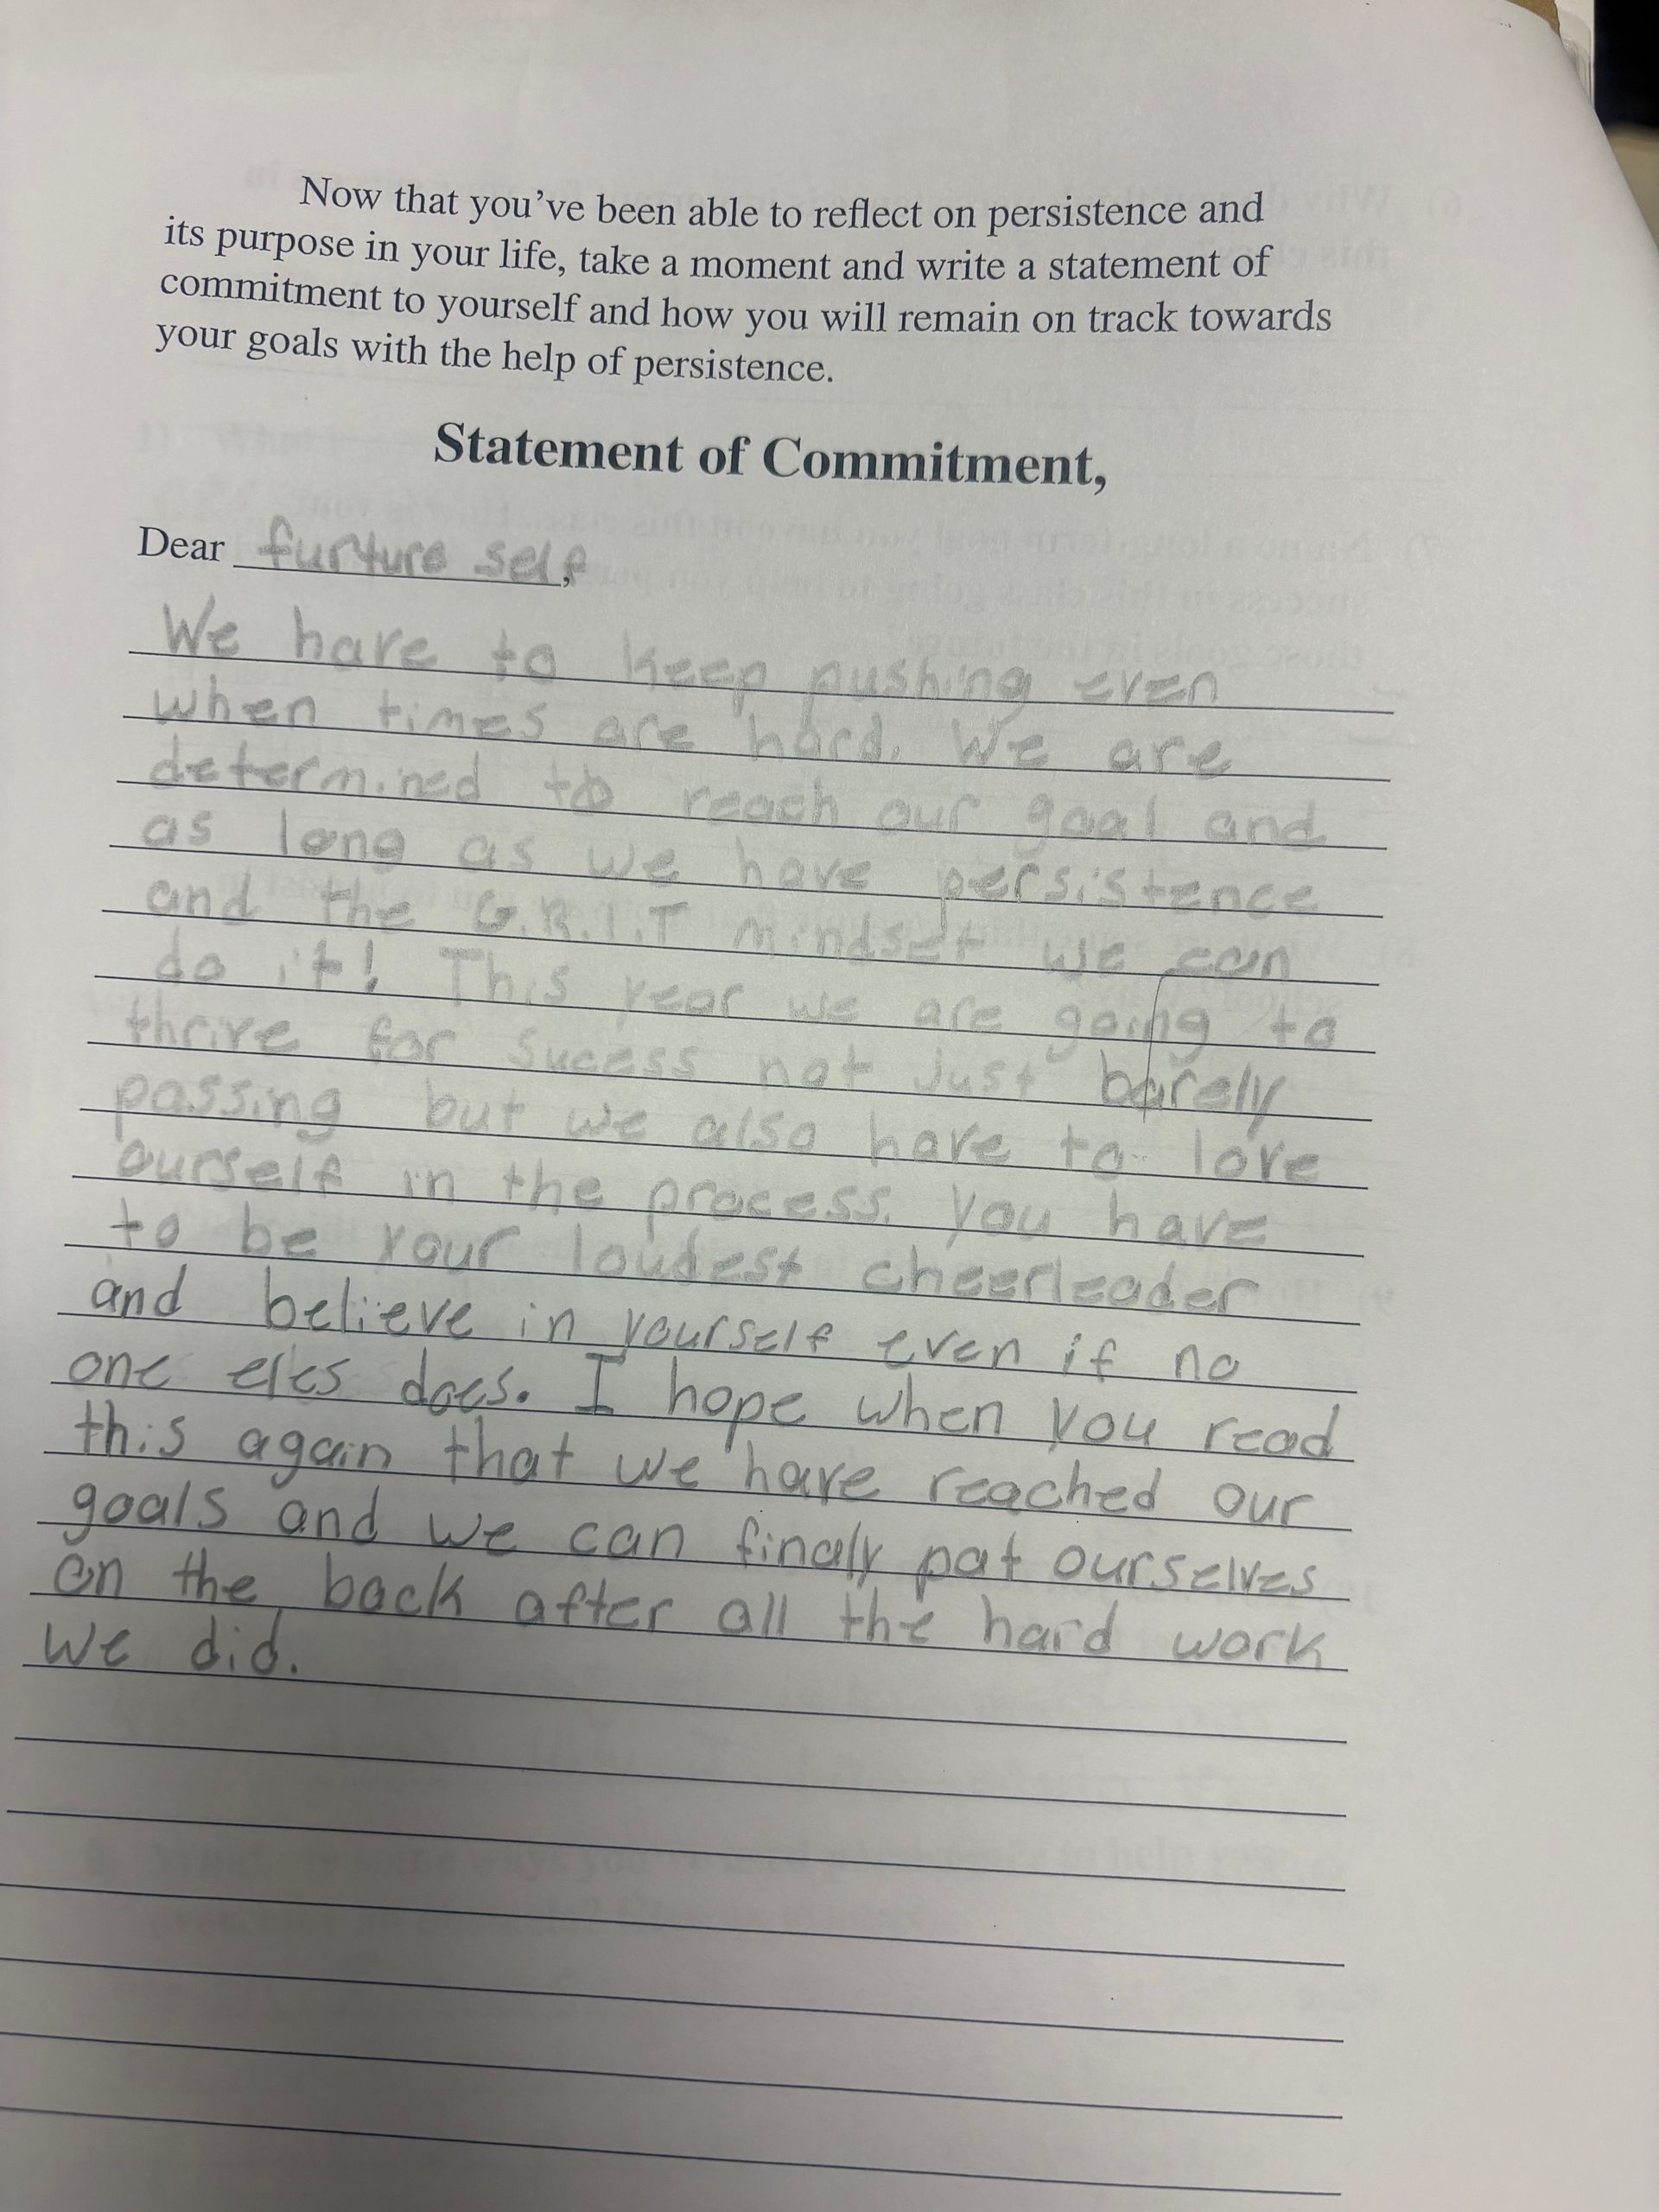 Now that you've been able to reflect on persistence and
its purpose in your life, take a moment and write a statement of
commitment to yourself and how you will remain on track towards
your goals with the help of persistence.
Statement of Commitment,
Dear furture self,
We have to keep pushing even
when times are hard. We are
determined to reach our goal and
as long as we have persistence
and the G.R.I.T mindset we can
do it! This year we are going to
thrive for sucess not Just barely
passing but we also have to love
ourself in the process. You have
to be your loudest cheerleader
and believe in yourself even if no
one eles does. I hope when you read
this again that we have reached our
goals and we can finaly pat ourselves
on the back after all the hard work
we did.